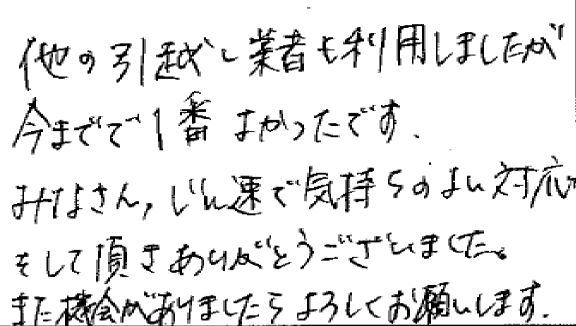 他の引越し業者も利用しましたが
今までで1番よかったです.
みなさん,じん速で気持ちのよい対応
そして頂きありがとうございました。
また機会がありましたらよろしくお願いします.